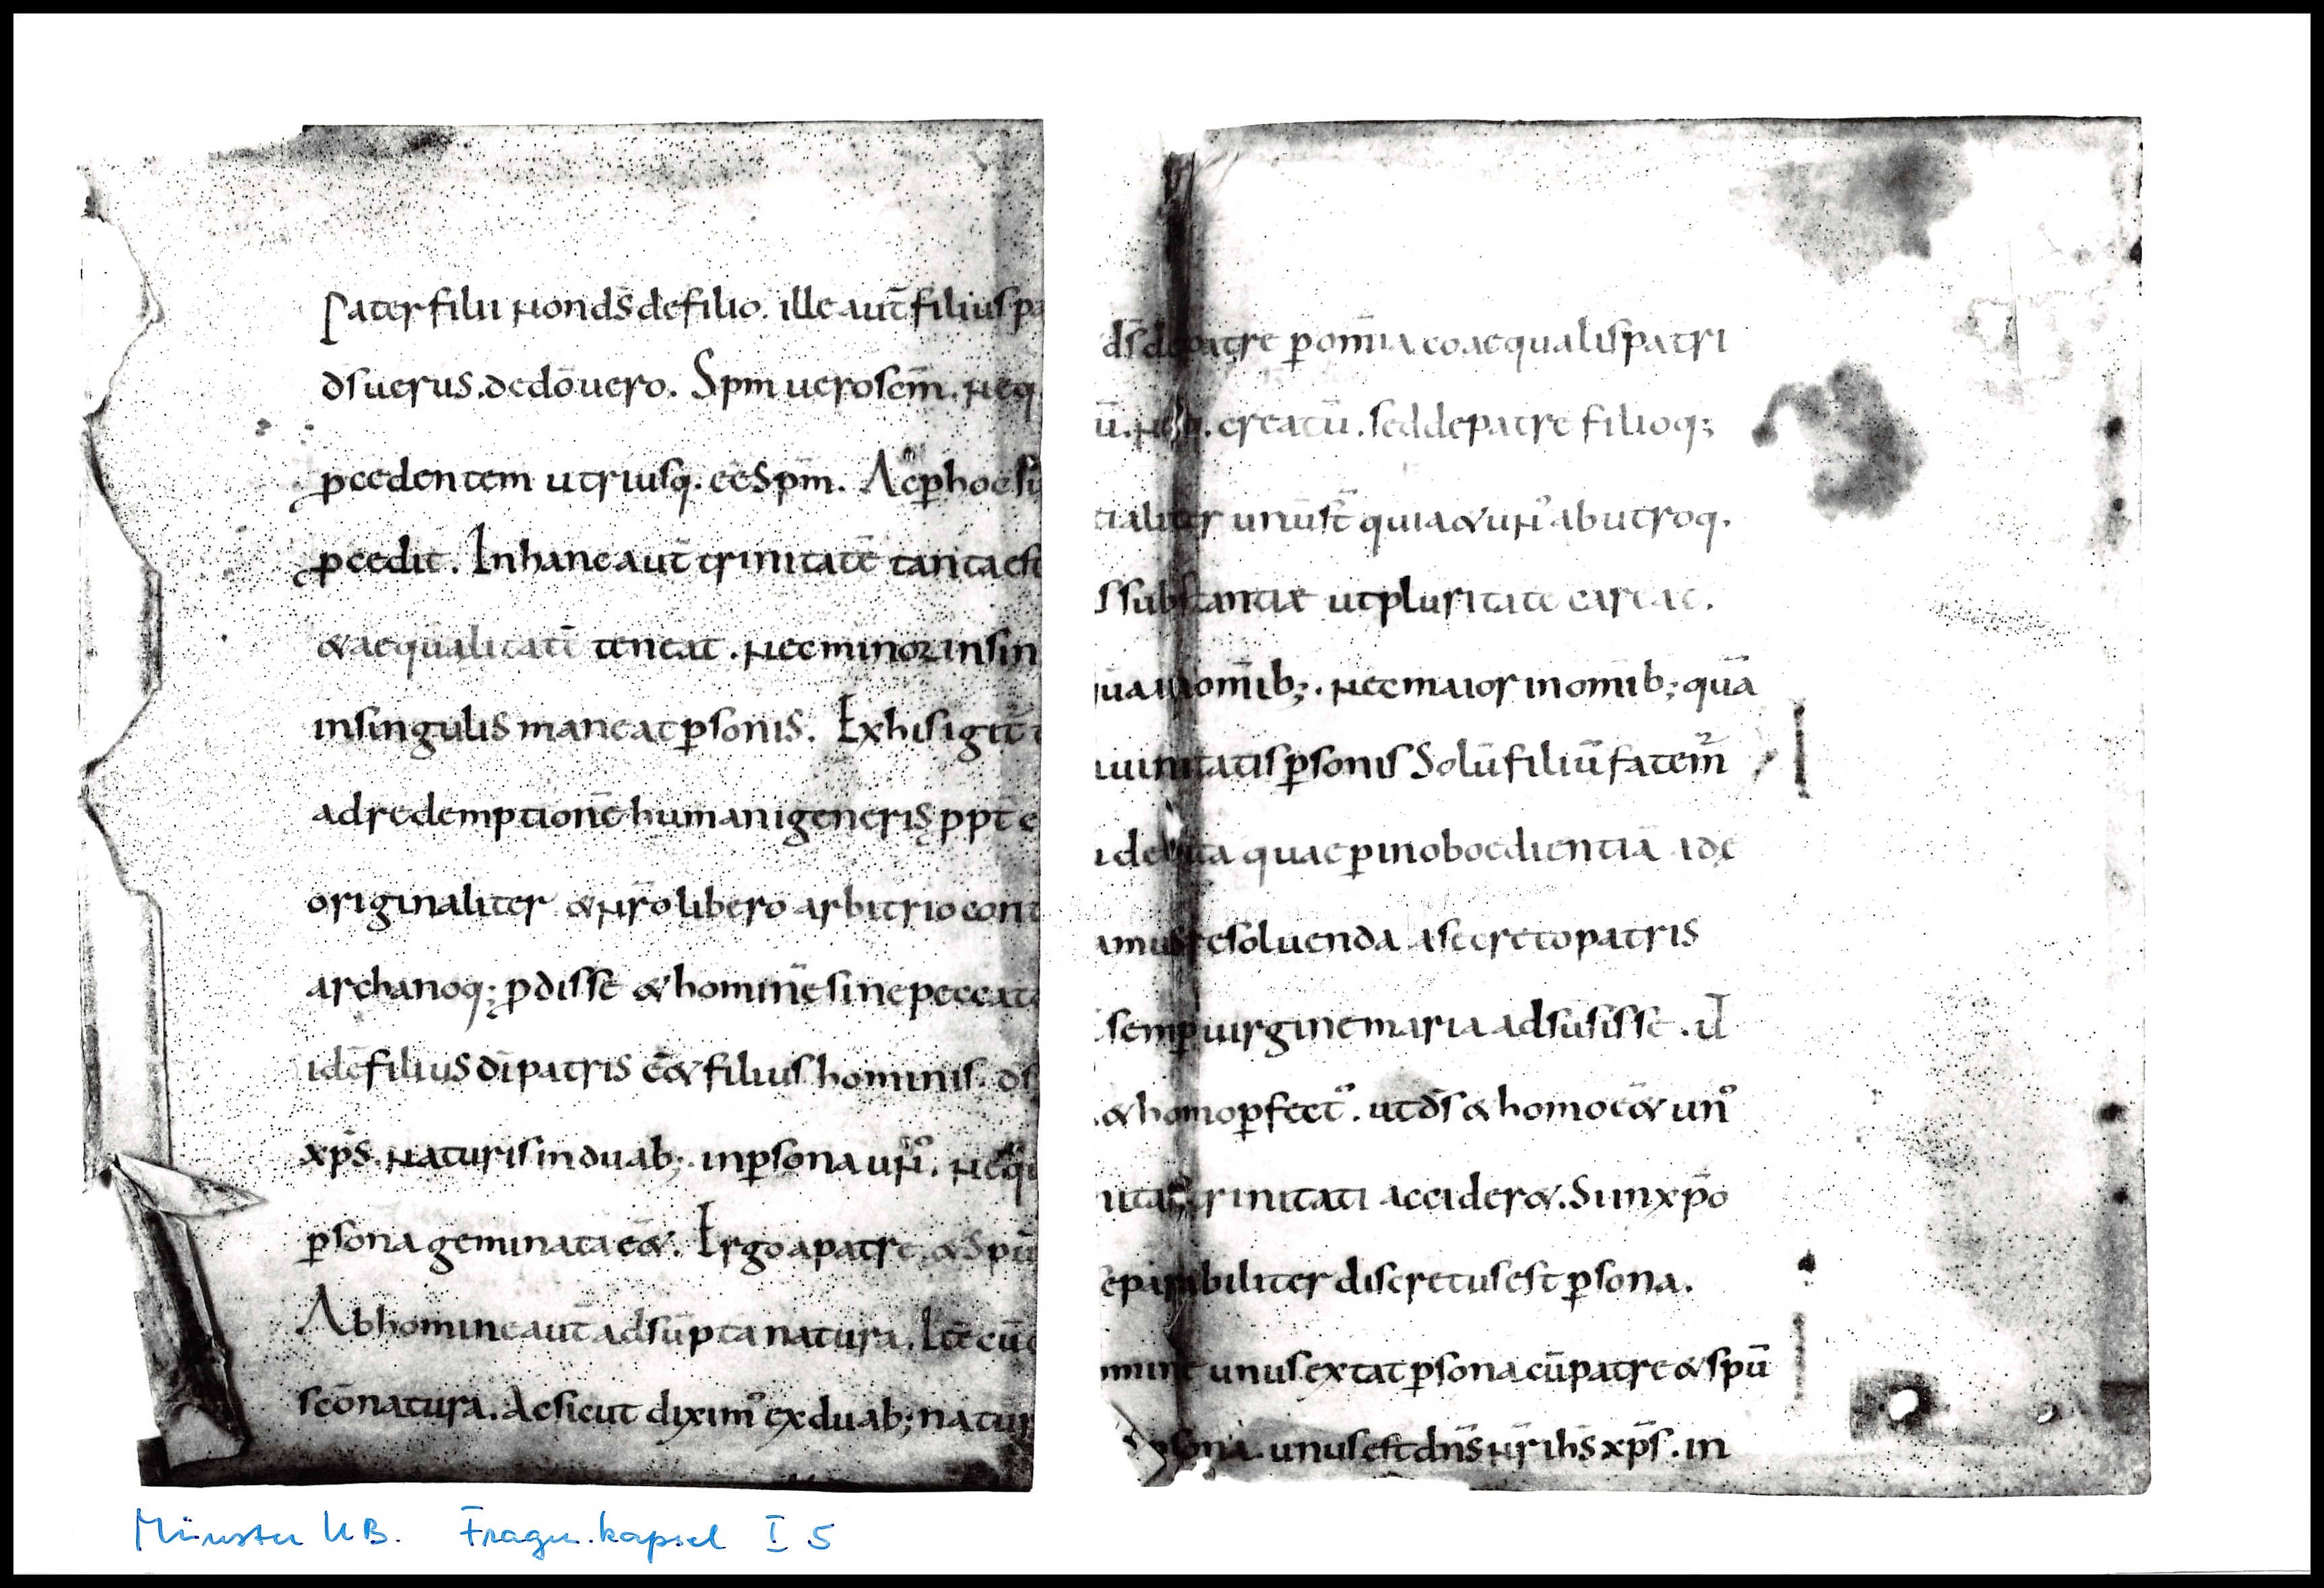 Pater filii non ds̄ de filio. ille aut̄ filius pa
ds̄ uerus. de dō uero. Spm̄ uero scm̄. neq
ꝓcedentem utriusq. eē spm̄. Ac ꝓ hoc su
ꝓcedit. In hanc aut̄ trinitatē tanta est
& aequalitatē teneat. nec minor in sin
in singulis maneat ꝑsonis. Ex his igit̄
ad redemptionē humani generis ꝓpt̄ e
originaliter & nr̄o libero arbitrio cont
archanoq; ꝓdisse & hominē sine peccato
idē filius dī patris ē & filius hominis. ds̄
xp̄s. naturis in duab;. in ꝑsona un᾽. neq̇
ꝑsona geminata eē&. Ergo a patre. & spū
Ab homine aut̄ adsūpta natura. Itē cū
scō natura. Ac sicut dixim᾽ ex duab; natur
ds̄ de patre ꝑ om̄ia coaequalis patri
ū. neq. creatū. sed de patre filioq;
tialiter unū st̄ quia & un᾽ ab utroq.
s substantiæ ut pluritate careat.
qua in om̄ib;. nec maior in om̄ib; quā
iuinitatis ꝑsonis Solū filiū fatem̄
debita quae ꝑ inoboedientiā adę
amus resoluenda a secreto patris
semꝑ uirgine maria adsūsisse. ut
& homo ꝑfect᾽. ut ds̄ & homo eē& un᾽
uta trinitati accider&. Sun xp̄o
eparabiliter discretus est ꝑsona.
unus extat ꝑsona cū patre & spū
ꝑsona. unus est dn̄s nr̄ ihs̄ xp̄s. in
Münster UB. Fragm.kapsel I 5